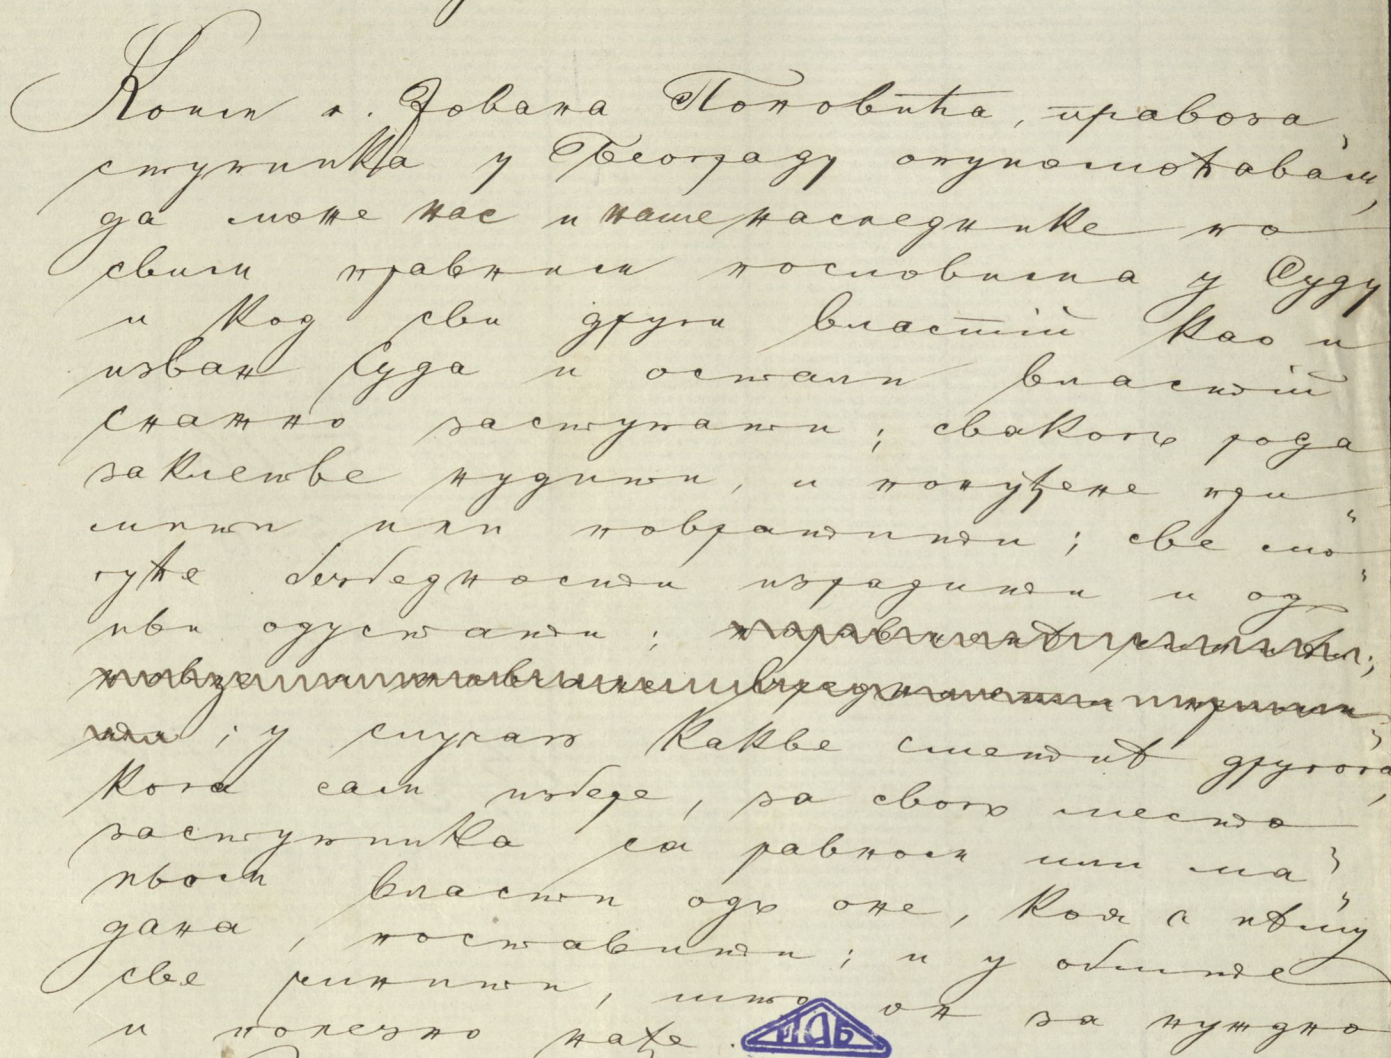 Коим г. Јована Поповића, правоза
ступника у Београду опуномоћавам,
да може нас и наше наследнике по
свим правним пословима у Суду
и код сви други властій као и
изван Суда и остали властій
снажно заступати; свакогъ рода
заклетве нудити, и понуђене при
мити или повратити; све мо
гуће безбедности израдити и од
њви одустати;
; у случаю какве сметнѣ другога
кога сам избере, за свогъ место
заступника са равном или ма
ньом власти одъ оне, коя є нѣму
дана, поставити; и у обште
све чинити, што он за нуждно
и полезно нађе.
ИАБ